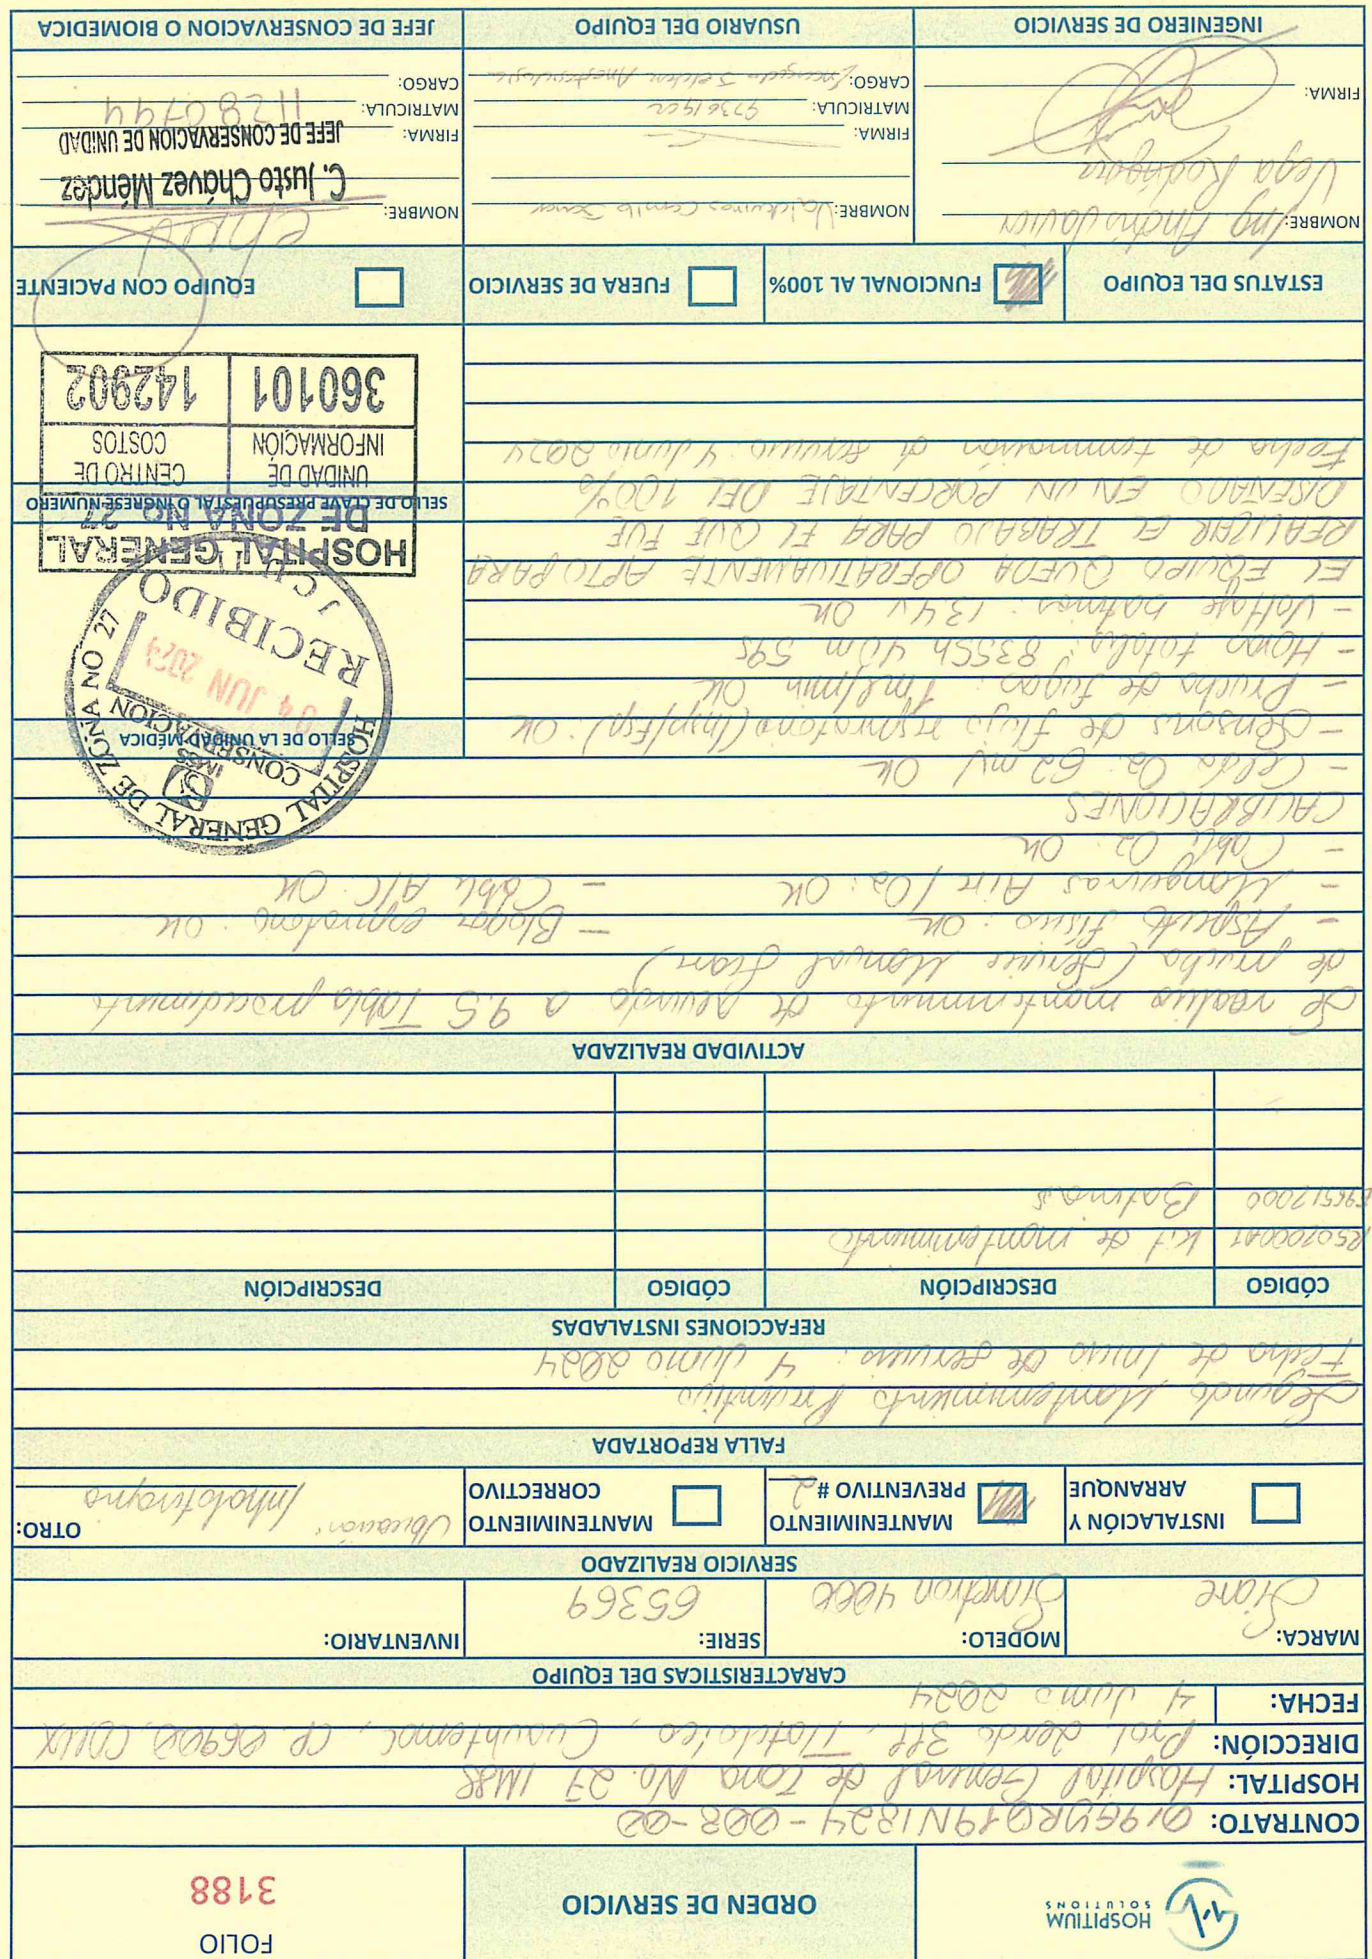 HOSPITIUM
SOLUTIONS
ORDEN DE SERVICIO
FOLIO
3188
CONTRATO: 019GYR019N1324-008-00
HOSPITAL: Hospital General de Zona No. 27 IMSS
DIRECCIÓN: Prol. Lerdo 311, Tlatelolco, Cuauhtemoc, CP. 06900, CDMX
FECHA: 4 Junio 2024
CARACTERISTICAS DEL EQUIPO
MARCA: Siare
MODELO: Siaretron 4000
SERIE: 65369
INVENTARIO:
SERVICIO REALIZADO
INSTALACIÓN Y ARRANQUE
MANTENIMIENTO PREVENTIVO # 2
MANTENIMIENTO CORRECTIVO
OTRO: Ubicación: Inhaloterapia
FALLA REPORTADA
Segundo Mantenimiento Preventivo
Fecha de Inicio de servicio: 4 Junio 2024
REFACCIONES INSTALADAS
CÓDIGO DESCRIPCIÓN CÓDIGO DESCRIPCIÓN
R507000A1 Kit de mantenimiento
Baterias
ACTIVIDAD REALIZADA
Se realiza mantenimiento de acuerdo a 9.5 Tabla procedimiento
de prueba (Service Manual Siare)
- Aspecto fisico: OK
- Bloque espiratorio: OK
- Mangueras Aire/O2: OK
- Cable A/C: OK
- Cable O2: OK
CALIBRACIONES
- Celda O2: 62 mV OK
- Sensores de flujo respiratorio (Insp/Esp): OK
- Prueba de fugas: 1 ml/min OK
- Horas totales: 8355h 40m 59s
- Voltaje baterias: 13.4v OK
EL EQUIPO QUEDA OPERATIVAMENTE APTO PARA
REALIZAR EL TRABAJO PARA EL QUE FUE
DISEÑADO EN UN PORCENTAJE DEL 100%
Fecha de terminación de servicio: 4 Junio 2024
SELLO DE LA UNIDAD MÉDICA
HOSPITAL GENERAL DE ZONA NO 27
IMSS
CONSERVACION
04 JUN 2024
RECIBIDO
J C U
SELLO DE CLAVE PRESUPUESTAL O INGRESE NUMERO
HOSPITAL GENERAL
DE ZONA No. 27
UNIDAD DE INFORMACIÓN
CENTRO DE COSTOS
360101
142902
ESTATUS DEL EQUIPO
FUNCIONAL AL 100%
FUERA DE SERVICIO
EQUIPO CON PACIENTE
NOMBRE: Ing Andrés Javier
Vega Rodríguez
FIRMA:
INGENIERO DE SERVICIO
NOMBRE:
FIRMA:
MATRICULA: 97361962
CARGO:
USUARIO DEL EQUIPO
NOMBRE:
C. Justo Chávez Méndez
FIRMA: JEFE DE CONSERVACION DE UNIDAD
MATRICULA: 11280794
CARGO:
JEFE DE CONSERVACION O BIOMEDICA